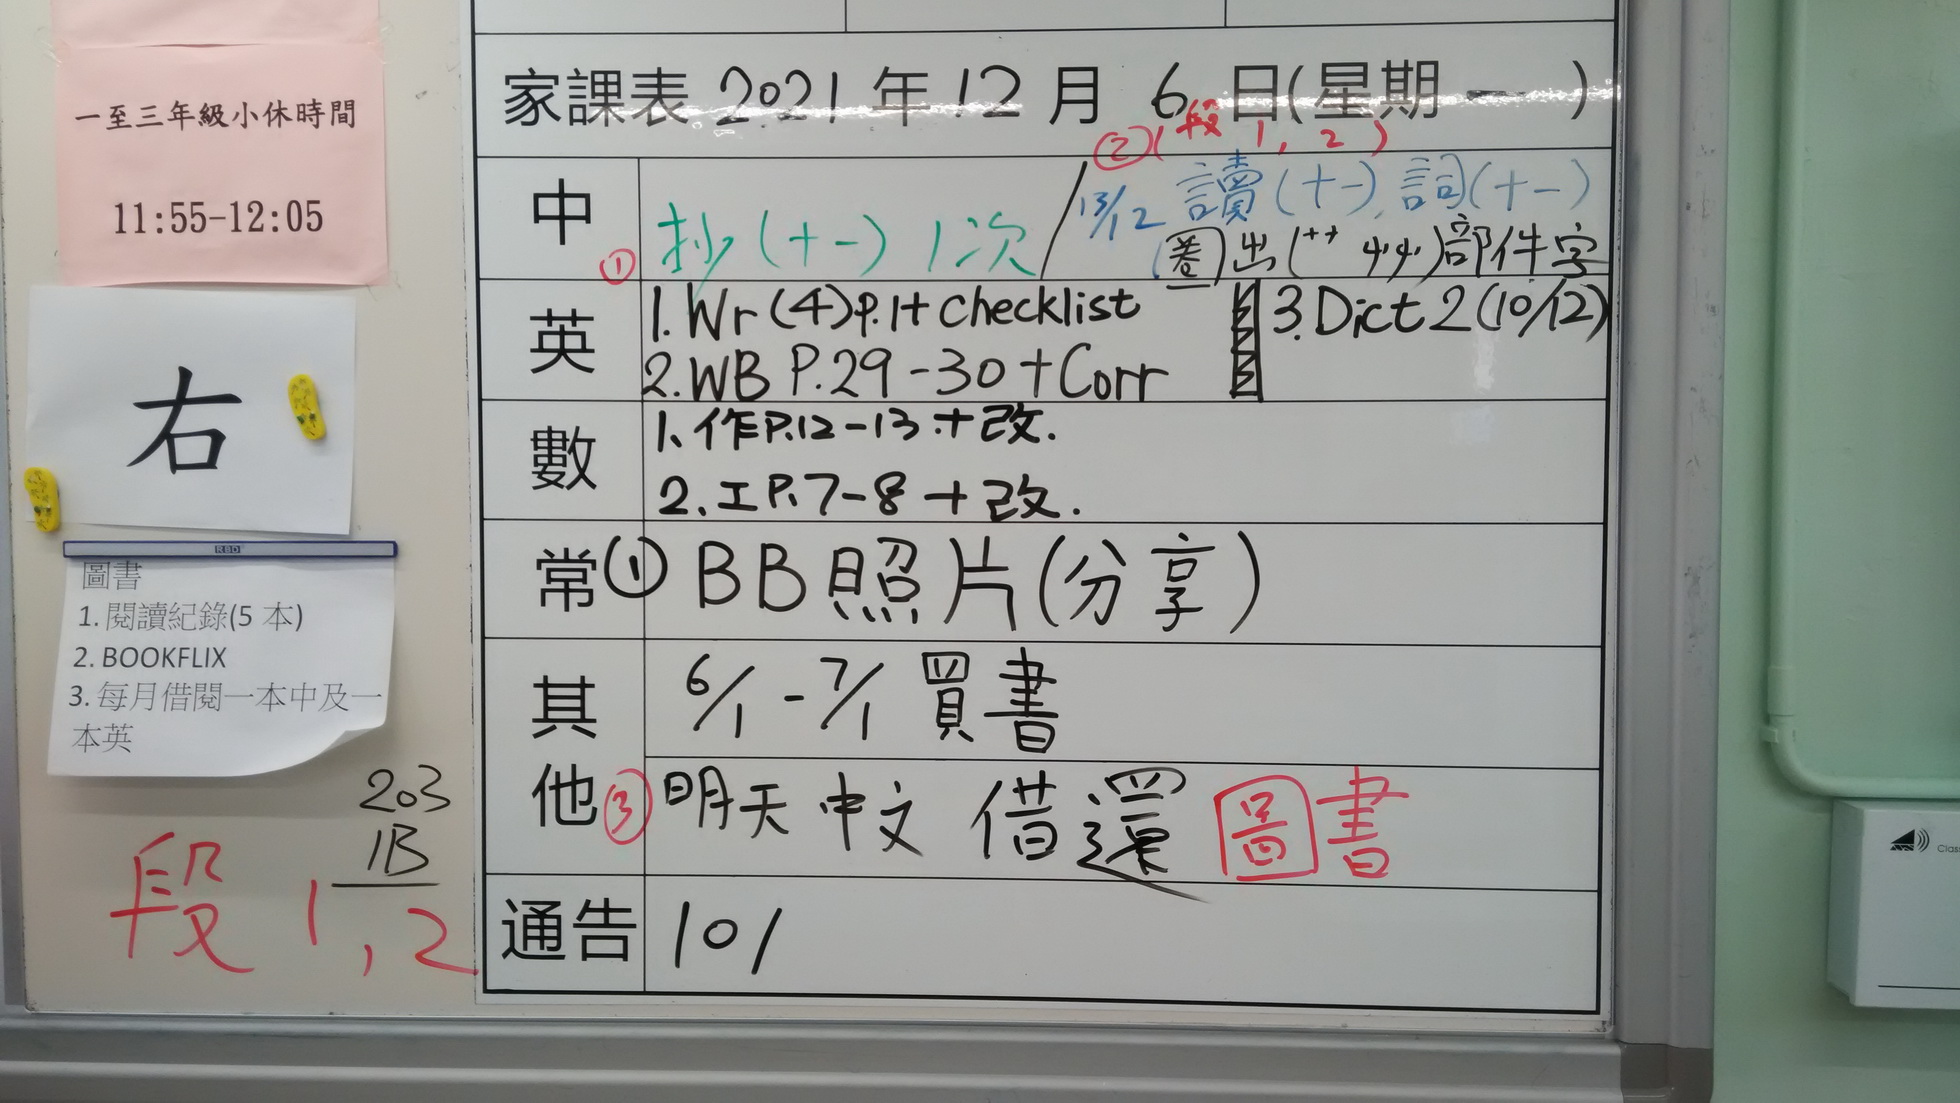 一至三年級小休時間
11:55-12:05
右
RBD
圖書
1. 閱讀紀錄(5 本)
2. BOOKFLIX
3. 每月借閱一本中及一
本英
203
1B
段 1, 2
家課表 2021 年 12 月 6 日(星期 一 )
② (段 1, 2)
中
① 抄 (十一) 1次 /
13/12 讀 (十一), 詞 (十一)
(圈)出 (艹 ) 部件字
英
1. Wr (4) P.1 + Checklist
2. WB P.29-30 + Corr
3. Dict 2 (10/12)
數
1. 作 P.12-13 + 改.
2. 工 P.7-8 + 改.
常
① BB 照片 (分享)
其他
6/1 - 7/1 買書
③ 明天 中文 借還 圖書
通告
101
Class